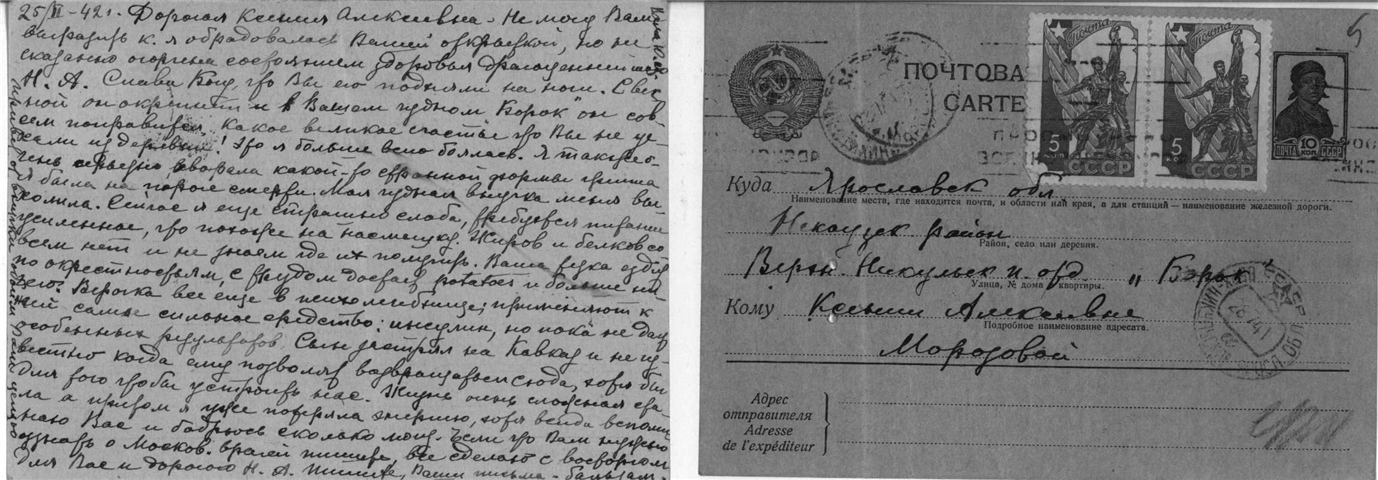 25/II-42 г. Дорогая Ксения Алексеевна - Не могу Вам
выразить к. я обрадовалась Вашей открыткой, но не
сказанно огорчена состоянием здоровья драгоценнейшего
Н. А. Слава Богу, что Вы его подняли на ноги. С вес
ной он окрепнет и в Вашем чудном "Борок" он сов
сем поправится, какое великое счастье что Вы не уе
хали из деревни! Это я больше всего боялась. Я также о
чень серьезно хворала какой-то странной формы гриппа
я была на пороге смерти. Моя чудная внучка меня вы
ходила. Сейчас я еще страшно слаба, требуется питание
усиленное, что похоже на насмешку. Жиров и белков со
всем нет и не знаем где их получить. Ваша
по окрестностям, с трудом достает potatoes и больше ни
чего. Верочка все еще в психолечебнице; применяют к
ней самые сильное средство: инсулин, но пока не дает
особенных результатов. Сын застрял на Кавказе и не из
вестно когда ему позволят возвращаться сюда, хотя бы
для того чтобы устроить нас. Жизнь очень сложная ста
ла а притом я уже потеряла энергию, хотя всегда вспоми
наю Вас и бодрюсь сколько могу. Если что Вам нужно
узнать о Москов. врачей пишите, все сделаю с восторгом
для Вас и дорогого Н. А. Пишите, Ваши письма - бальзам.
5
ПОЧТОВА
CARTE
ПОЧТА
5
СССР
ПОЧТА
5
СССР
ПОЧТА 10 КОП. СССР
Куда Ярославск обл
Наименование места, где находится почта, и области или края, а для станций — наименование железной дороги.
Некоузск район
Район, село или деревня.
Верхн Никульск п. отд „Борок"
Улица, № дома и квартиры.
Кому Ксении Алексеевне
Подробное наименование адресата.
Морозовой
Адрес
отправителя
Adresse
de l'expéditeur